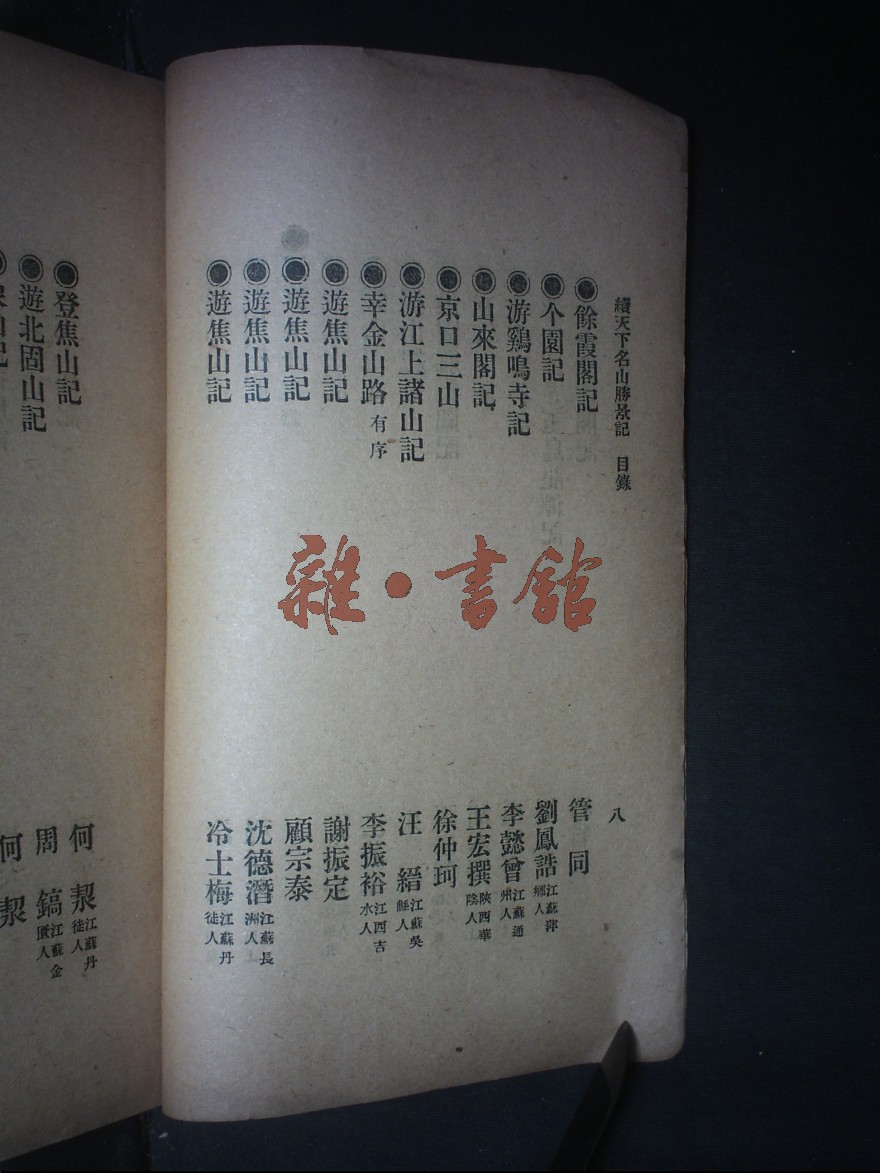 續天下名山勝景記 目錄 八
餘霞閣記 管同
个園記 劉鳳誥 江蘇萍鄉人
游鷄鳴寺記 李懿曾 江蘇通州人
山來閣記 王宏撰 陝西華陰人
京口三山 徐仲珂
游江上諸山記 汪縉 江蘇吳縣人
幸金山路 有序 李振裕 江西吉水人
遊焦山記 謝振定
遊焦山記 顧宗泰
遊焦山記 沈德潛 江蘇長洲人
遊焦山記 冷士梅 江蘇丹徒人
登焦山記 何洯 江蘇丹徒人
遊北固山記 周鎬 江蘇金匱人
山記 何洯
雜·書館